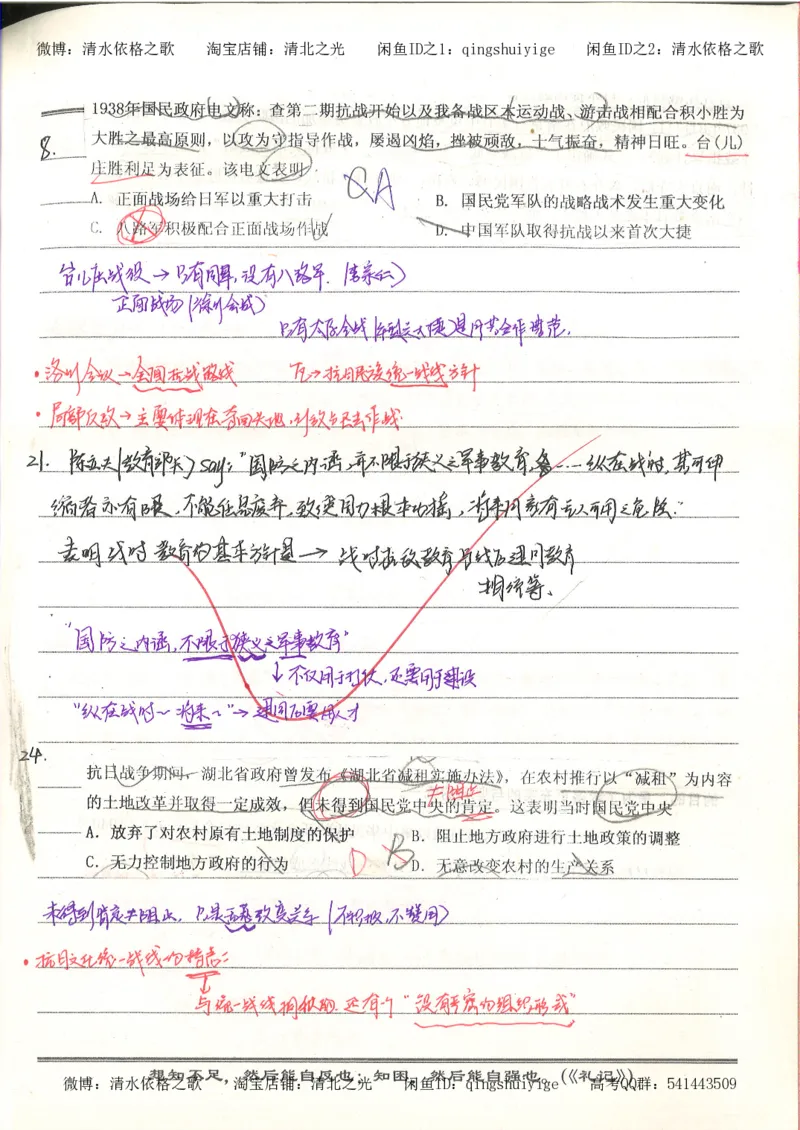 微博：清水依格之歌 淘宝店铺：清北之光 闲鱼ID之1：qingshuiyige 闲鱼ID之2：清水依格之歌
1938年国民政府电文称：查第二期抗战开始以及我备战区本运动战、游击战相配合积小胜为
8. 大胜之最高原则，以攻为守指导作战，屡遏凶焰，挫被顽敌，士气振奋，精神日旺。台(儿)
庄胜利足为表征。该电文表明
A. 正面战场给日军以重大打击 B. 国民党军队的战略战术发生重大变化
C. 八路军积极配合正面战场作战 D. 中国军队取得抗战以来首次大捷
A
台儿庄战役→只有国军,没有八路军.
正面战场(徐州会战)
只有太原会战 是国共合作典范.
·洛川会议→全面抗战路线 瓦→抗日民族统一战线方针
·局部反攻→主要体现在
21. 陈立夫(教育部长)say:"国防之内涵,并不限于狭义之军事教育, 纵在战时,其可伸
缩者亦有限,不能任易废弃,致使国力根本动摇,将来国家有无人可用之危险."
表明战时教育的基本方针是→战时抗敌教育与战后建国教育
相统筹.
"国防之内涵,不限于狭义之军事教育"
↓不仅用于打仗,还要用于建设
"纵在战时~将来~"→建国需要用人才
24.
抗日战争期间，湖北省政府曾发布《湖北省减租实施办法》，在农村推行以“减租”为内容
≠阻止
的土地改革并取得一定成效，但未得到国民党中央的肯定。这表明当时国民党中央
A. 放弃了对农村原有土地制度的保护 B. 阻止地方政府进行土地政策的调整
C. 无力控制地方政府的行为 D. 无意改变农村的生产关系
D B
未得到肯定≠阻止, 只是无意改变关系(不积极,不使用)
·抗日民族统一战线的特点:
与统一战线相较的,还有个"没有严密的组织形式"
想知不足，然后能自反也；知困，然后能自强也。(《礼记》)
微博：清水依格之歌 淘宝店铺：清北之光 闲鱼ID：qingshuiyige 高考QQ群：541443509